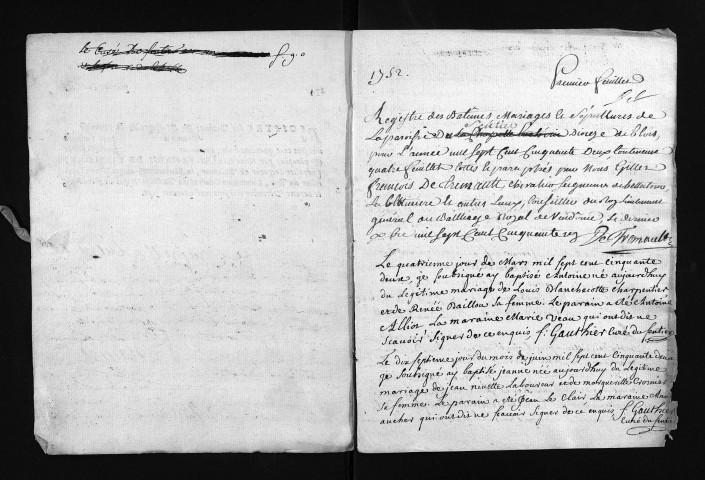 le Curé de sentier
f. 9.o
1752.
Premier feuillet
Registre des Batêmes Mariages & Sépultures de
la paroisse De Sentier la Chapelle Diocèse de Blois,
pour L'année mil Sept Cent Cinquante Deux, Contenant
quatre feuillets Cottés & paraphés par Nous Gilles
François De Tremault, chevalier seigneur de Bellatour
& autres Lieux, Conseiller du Roy Lieutenant
général au Bailliage Royal de Vendôme, le dernier
xbre mil Sept Cent Cinquante un De Tremault
Le quatrieme jour de Mars mil sept cent cinquante
deux, je soubsigné ay baptisé Antoine né aujourdhuy
du Legitime mariage de Louis Blanchecotte charpentier
et de Renée Baillou sa femme. Le parain a été Antoine
Allion La maraine Marie Veau qui ont dis ne
scavoir signer de ce enquis, f. Gauthier Curé du sentier
Le dix septieme jour du mois de juin mil sept cent cinquante deux
je soubsigné ay baptisé jeanne née aujourdhuy du Legitime
mariage de jean nivelle Laboureur et de
sa femme. Le parain a été jean Le Clair La maraine
qui ont dis ne scavoir signer de ce enquis f. Gauthier
Curé du sentier